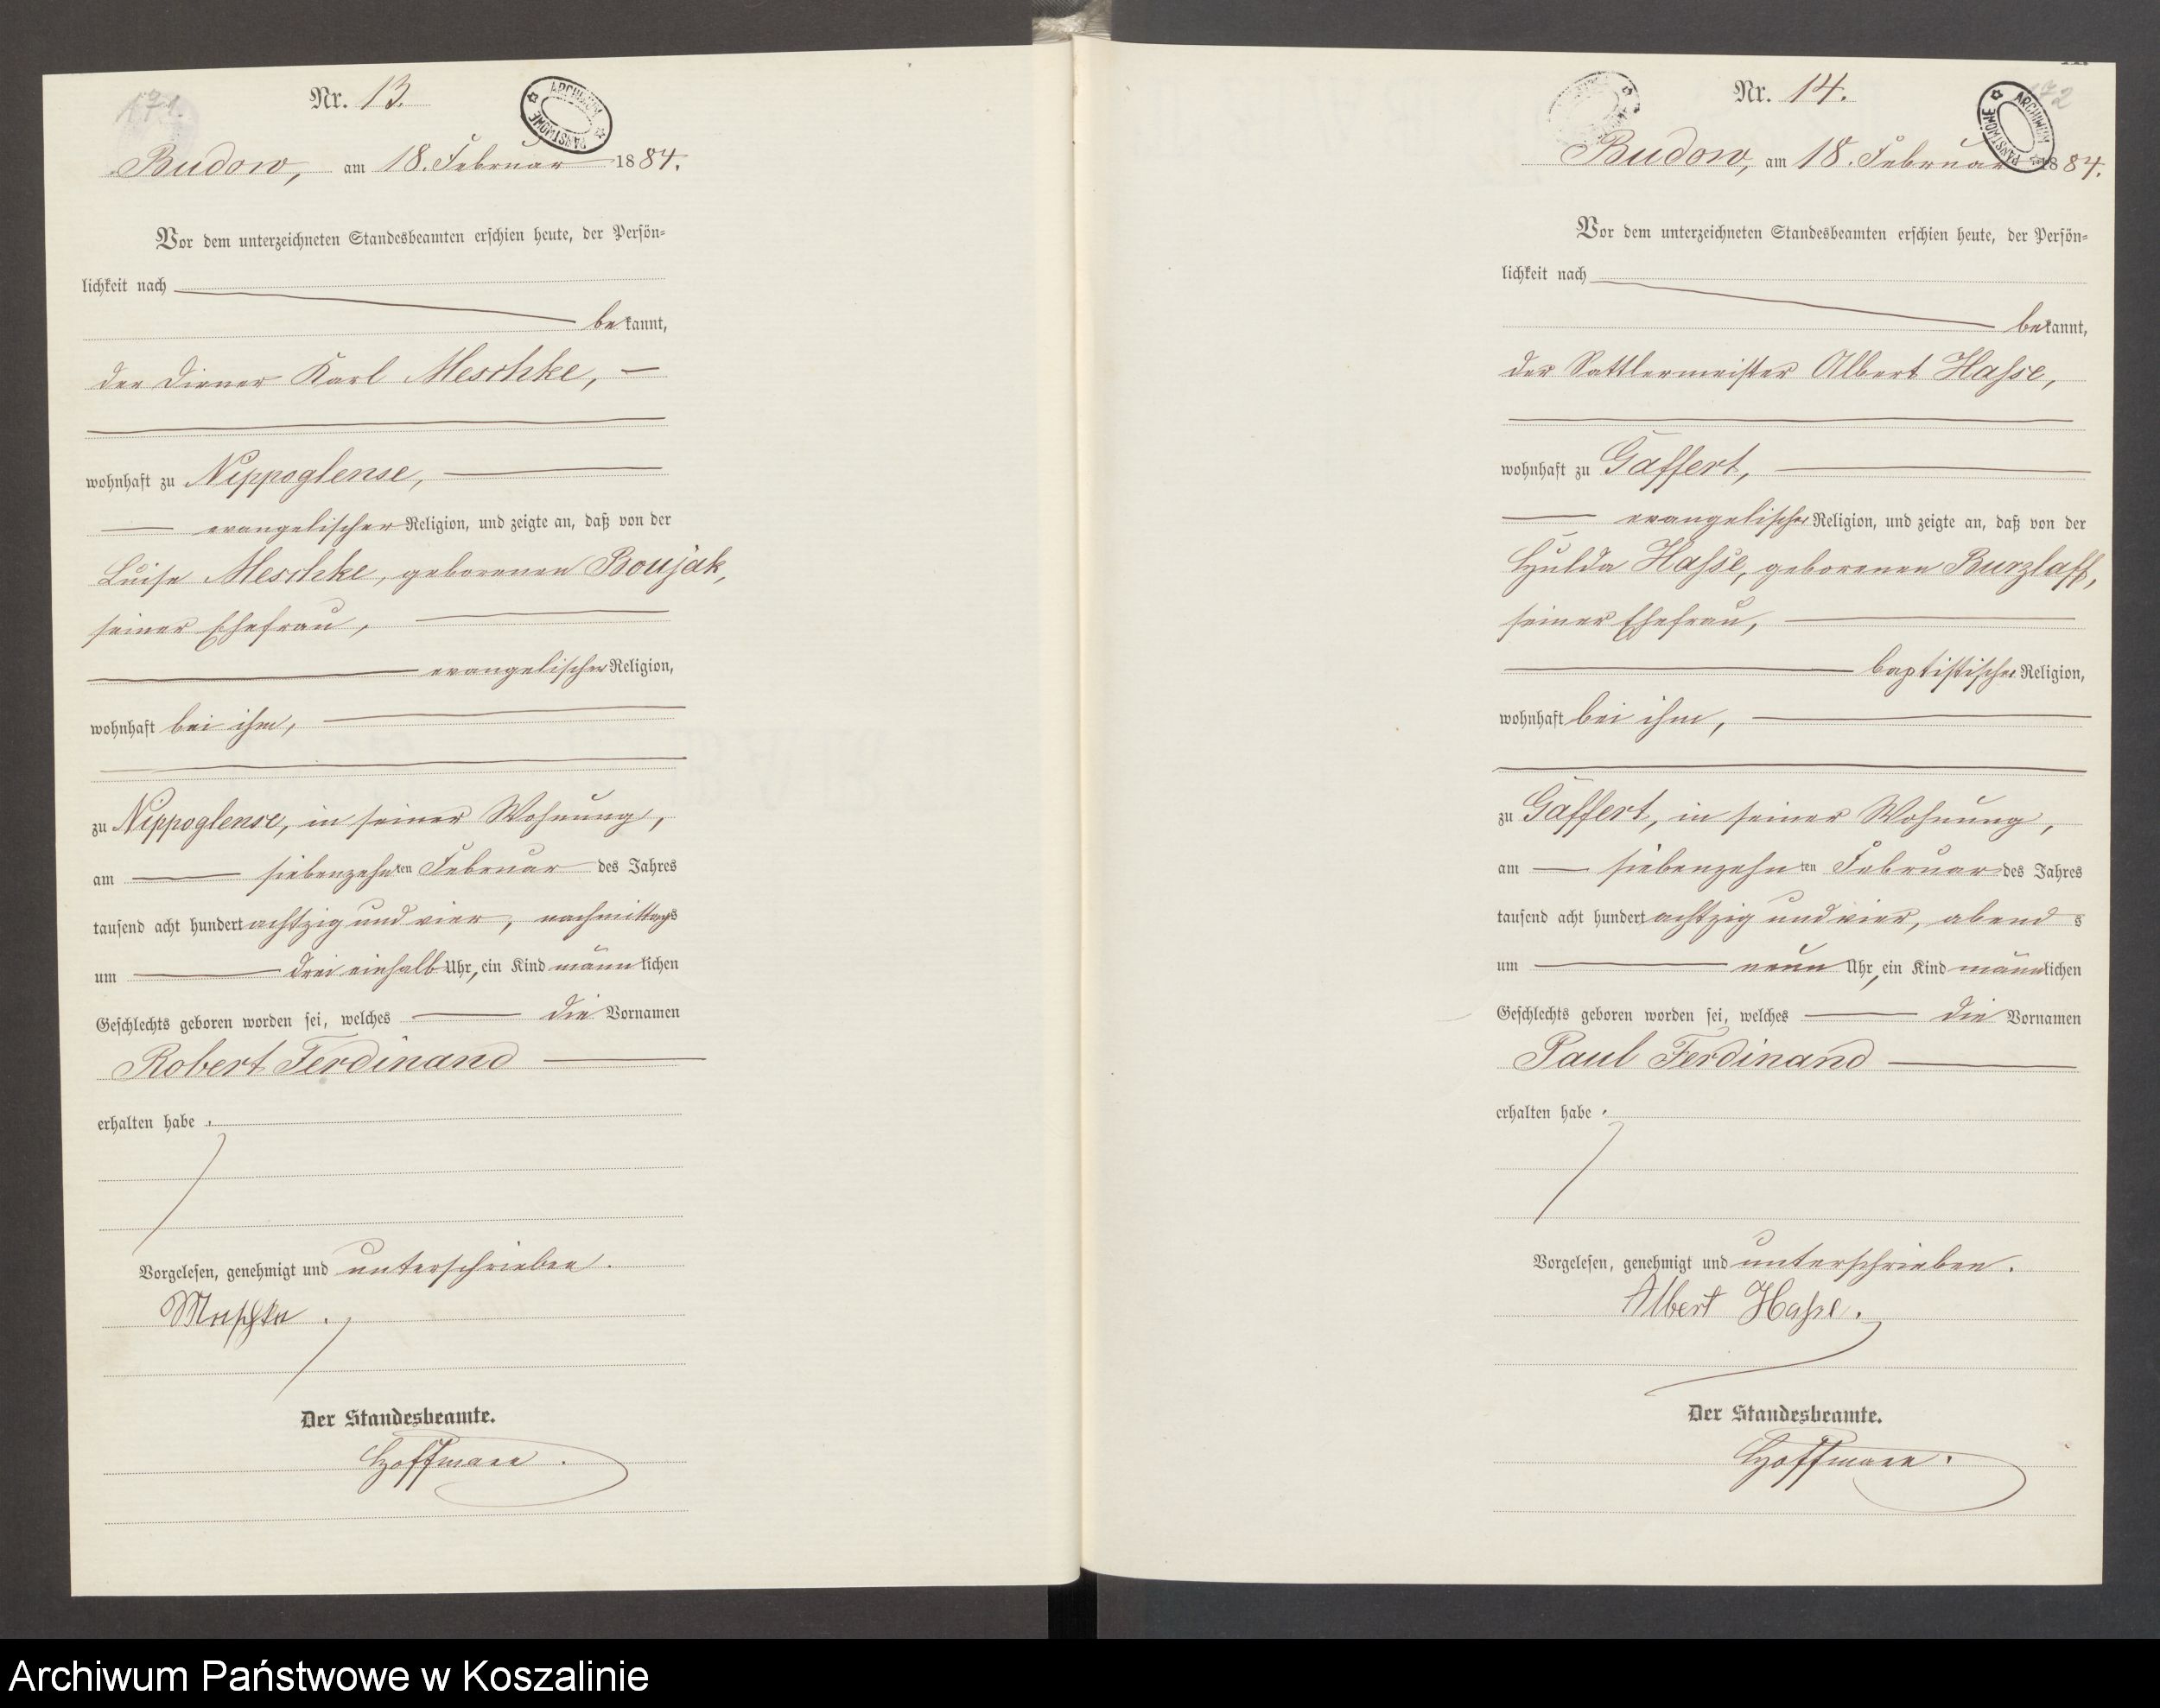 171.
Nr. 13.
ARCHIWUM PAŃSTWOWE
Budow, am 18. Februar 1884.
Vor dem unterzeichneten Standesbeamten erschien heute, der Persön=
lichkeit nach
bekannt,
der Diener Karl Meschke,
wohnhaft zu Nippoglense,
evangelischer Religion, und zeigte an, daß von der
Luise Meschke, geborenen Boujak,
seiner Ehefrau,
evangelischer Religion,
wohnhaft bei ihm,
zu Nippoglense, in seiner Wohnung,
am siebenzehnten Februar des Jahres
tausend acht hundert achtzig und vier, nachmittags
um drei einhalb Uhr, ein Kind männlichen
Geschlechts geboren worden sei, welches die Vornamen
Robert Ferdinand
erhalten habe.
Vorgelesen, genehmigt und unterschrieben.
Meschke.
Der Standesbeamte.
Hoffmann.
172
Nr. 14.
ARCHIWUM PAŃSTWOWE
Budow, am 18. Februar 1884.
Vor dem unterzeichneten Standesbeamten erschien heute, der Persön=
lichkeit nach
bekannt,
der Sattlermeister Albert Hasse,
wohnhaft zu Gaffert,
evangelischer Religion, und zeigte an, daß von der
Hulda Hasse, geborenen Burzlaff,
seiner Ehefrau,
baptistischer Religion,
wohnhaft bei ihm,
zu Gaffert, in seiner Wohnung,
am siebenzehnten Februar des Jahres
tausend acht hundert achtzig und vier, abends
um neun Uhr, ein Kind männlichen
Geschlechts geboren worden sei, welches die Vornamen
Paul Ferdinand
erhalten habe.
Vorgelesen, genehmigt und unterschrieben.
Albert Hasse.
Der Standesbeamte.
Hoffmann.
Archiwum Państwowe w Koszalinie